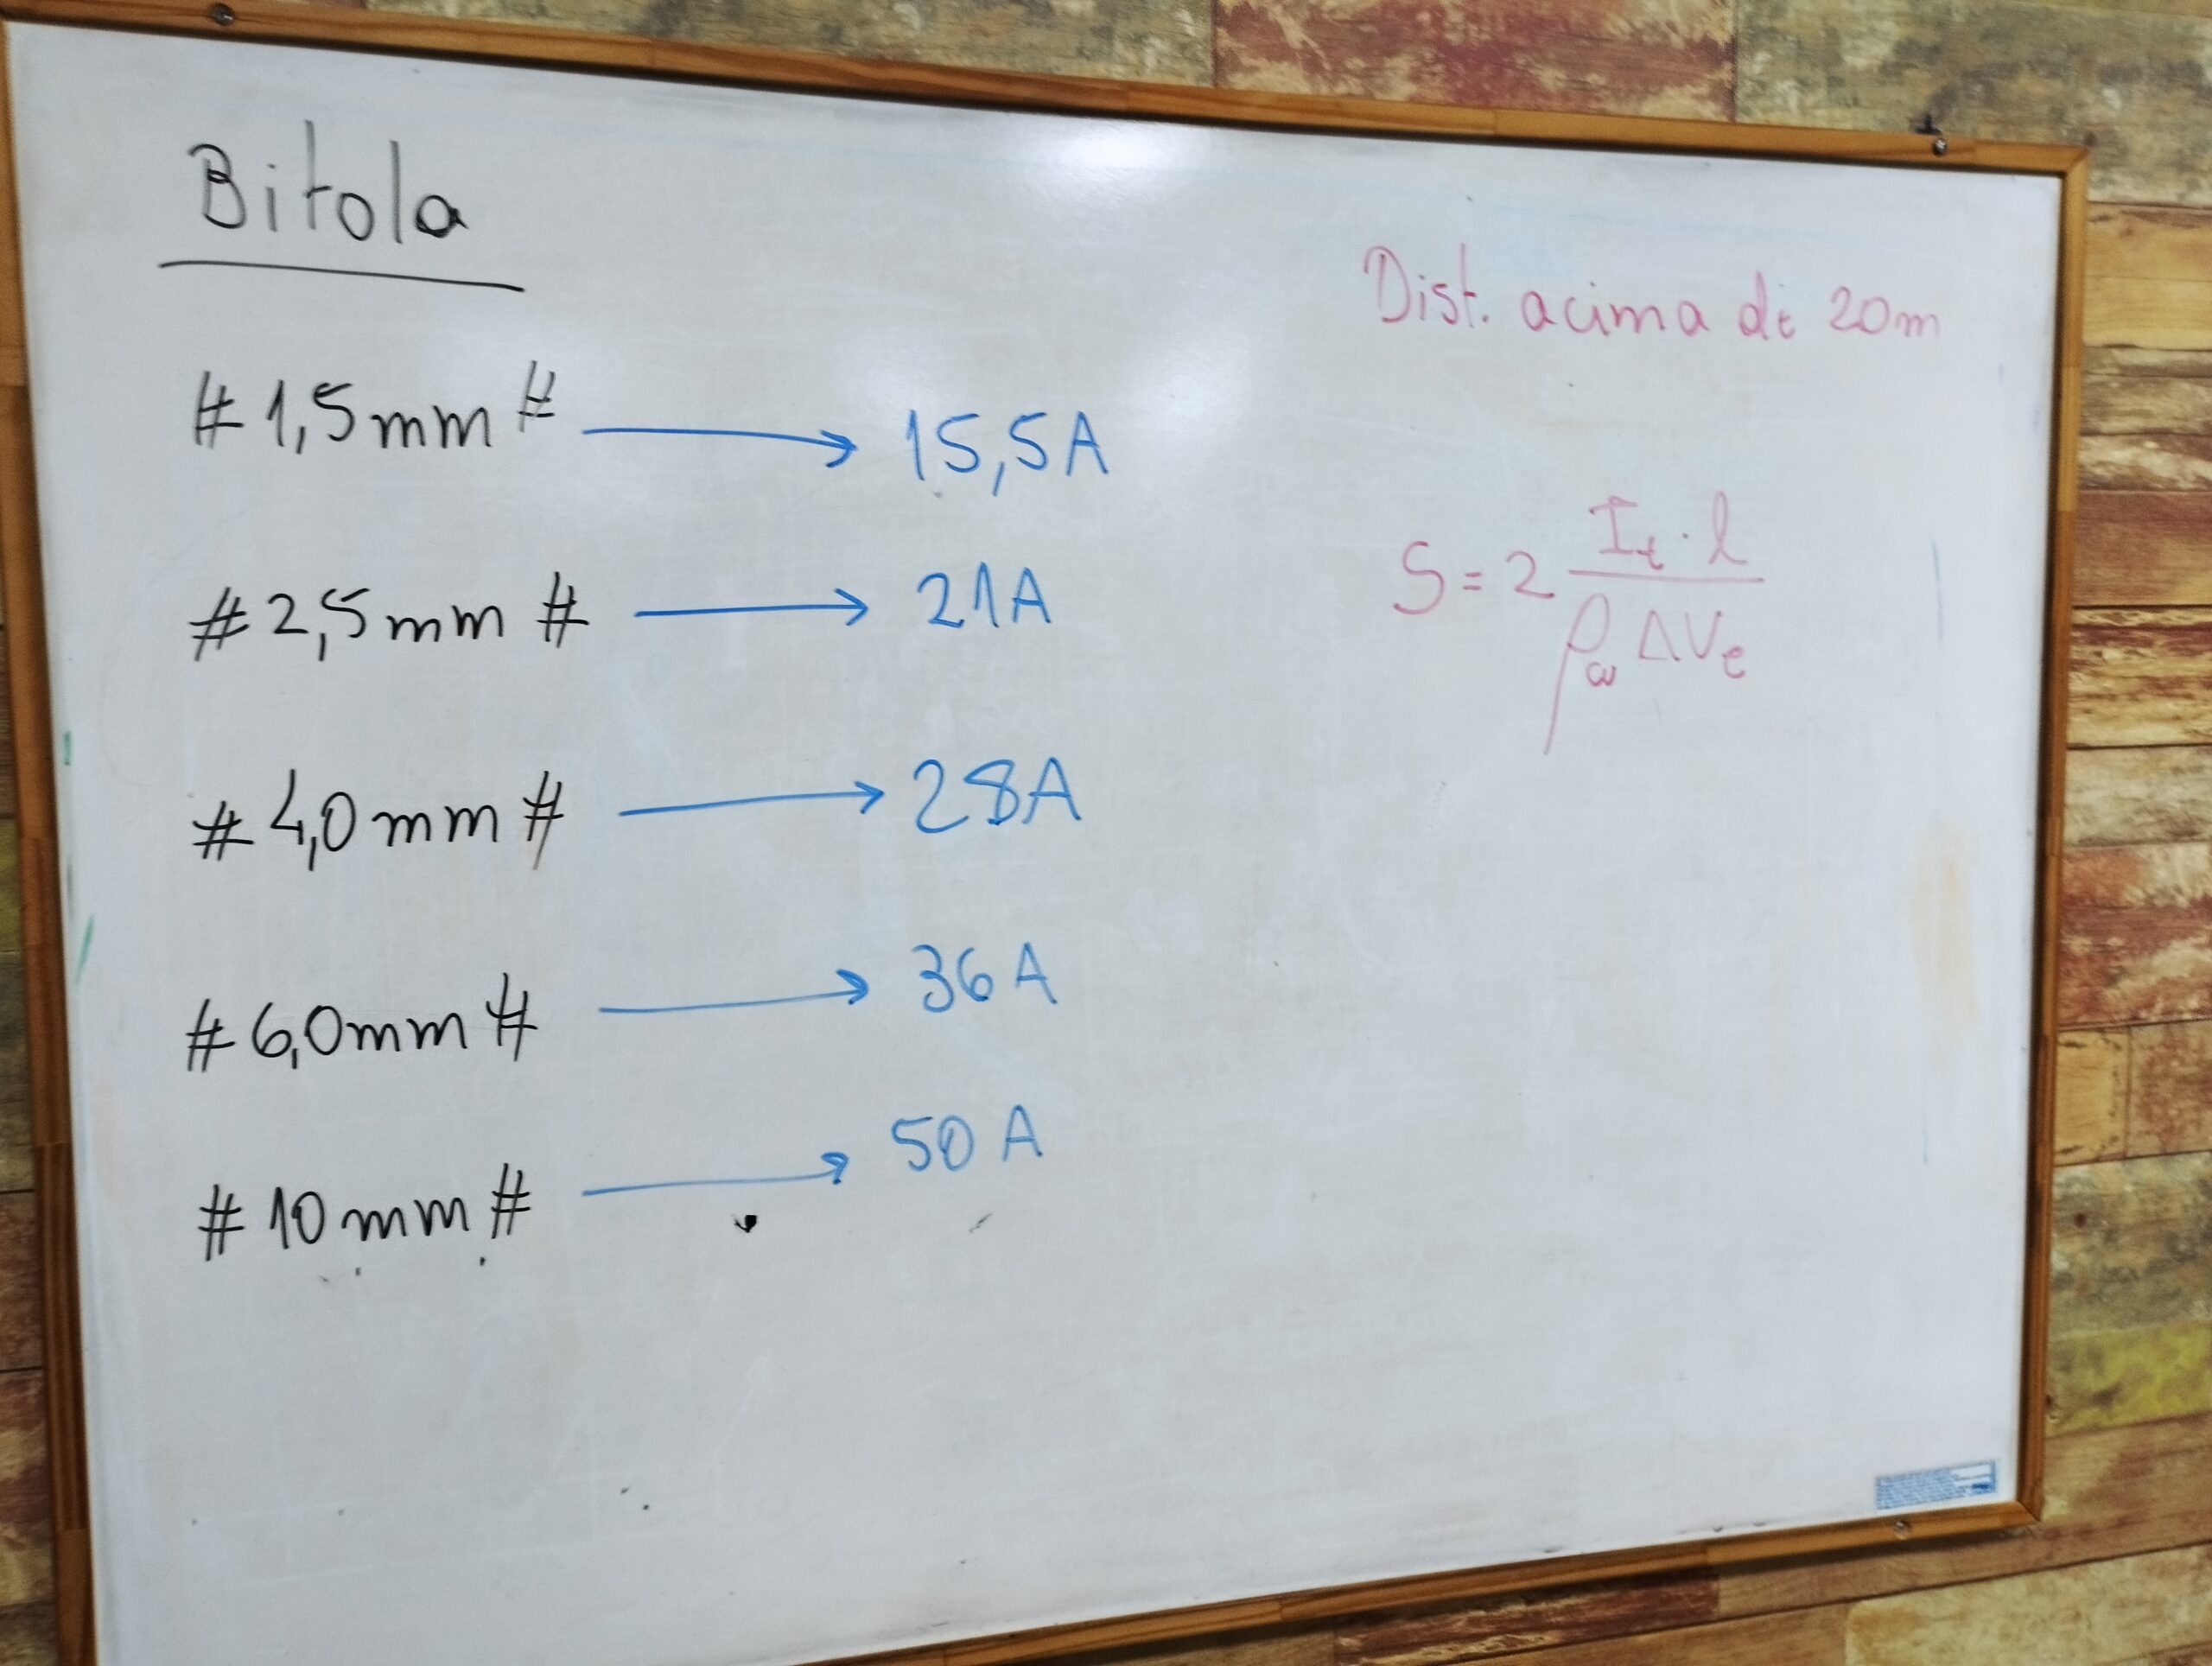 Bitola
#1,5mm# → 15,5A
#2,5mm# → 21A
#4,0mm# → 28A
#6,0mm# → 36A
#10mm# → 50A
Dist. acima de 20m
S = 2 It · l / ρω ΔVe